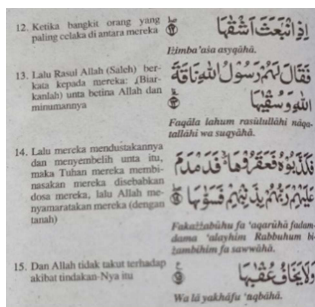 12. Ketika bangkit orang yang
paling celaka di antara mereka
إِذِ انْبَعَثَ أَشْقَىٰهَا
Iżimba'asa asyqāhā.
13. Lalu Rasul Allah (Saleh) ber-
kata kepada mereka: „(Biar-
kanlah) unta betina Allah dan
minumannya
فَقَالَ لَهُمْ رَسُولُ اللّٰهِ نَاقَةَ
اللّٰهِ وَسُقْيٰهَا
Faqāla lahum rasūlullāhi nāqa-
tallāhi wa suqyāhā.
14. Lalu mereka mendustakannya
dan menyembelih unta itu,
maka Tuhan mereka membi-
nasakan mereka disebabkan
dosa mereka, lalu Allah me-
nyamaratakan mereka (dengan
tanah)
فَكَذَّبُوهُ فَعَقَرُوهَا فَدَمْدَمَ
عَلَيْهِمْ رَبُّهُمْ بِذَنْبِهِمْ فَسَوّٰىهَا
Fakażżabūhu fa 'aqarūhā fadam-
dama 'alayhim Rabbuhum bi-
żambihim fa sawwāhā.
15. Dan Allah tidak takut terhadap
akibat tindakan-Nya itu
وَلَا يَخَافُ عُقْبٰهَا
Wa lā yakhāfu 'uqbāhā.